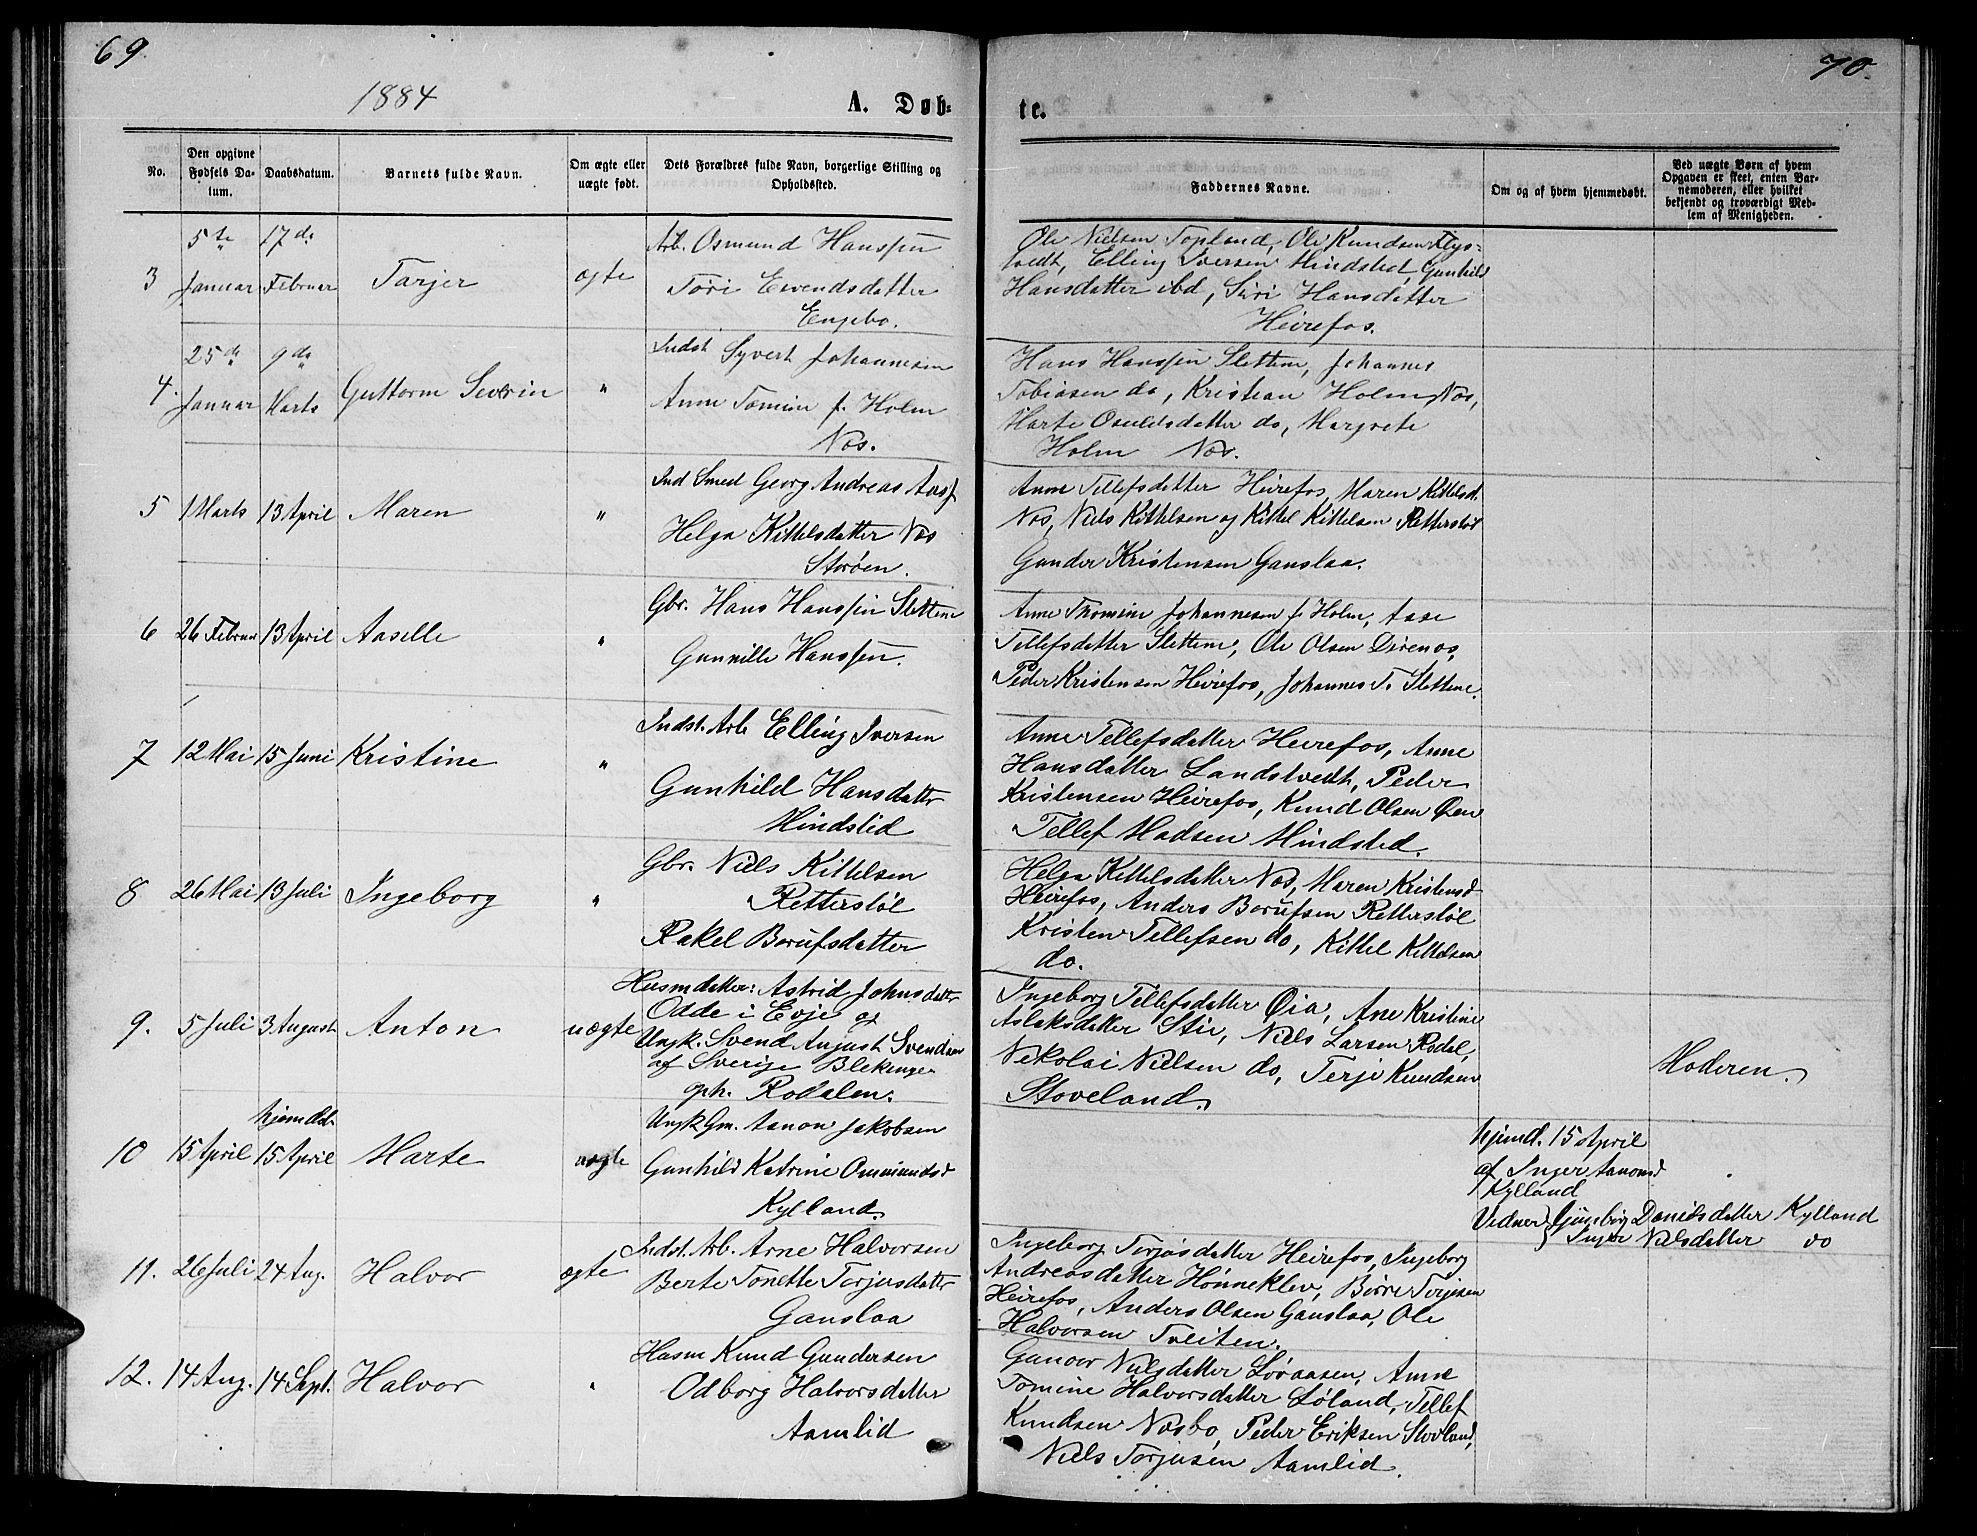 69.
70.
1884
A. Døb-
te.
No.
Den opgivne Fødsels Da-tum.
Daabsdatum.
Barnets fulde Navn.
Om ægte eller uægte født.
Dets Forældres fulde Navn, borgerlige Stilling og Opholdssted.
Faddernes Navne.
Om og af hvem hjemmedøbt.
Ved uægte Børn af hvem Opgaven er skeet, enten Bar-nemoderen, eller hvilket bekjendt og troværdigt Med-lem af Menigheden.
3
5te Januar
17de Februar
Tarjer
ægte
Arb. Osmund Hanssen
Tori Evendsdatter
Engebo.
Ole Nielsen Topland, Ole Knudsen
Elling Iversen Mindslid, Gunhild
Hansdatter ibd, Siri Hansdatter
Heirefos.
4.
25de Januar
9de Marts
Guttorm Severin
"
Indst Syvert Johannesen
Anne Tomine f. Holm
Næs.
Hans Hanssen Slettene, Johannes
Tobiasen do, Kristian Holm Næs,
Marte Osuldsdatter do, Margrete
Holm Næs.
5
1 Marts
13 April
Maren
"
Ind Smed Georg Andreas Aas f
Helga Kittelsdatter Næs
Storøen.
Anne Tellefsdatter Heirefos, Maren Kittelsd.
Næs, Niels Kittelsen og Kittel Kittelsen Retterstøl
Gunder Kristensen Gauslaa.
6
26 Februar
13 April
Aaselle
"
Gbr. Hans Hanssen Slettene
Gunnille Hanssen.
Anne Thomine Johannesen f. Holm, Aase
Tellefsdatter Slettene, Ole Olsen Direnæs,
Peder Kristensen Heirefos, Johannes T. Slettene.
7
12 Mai
15 Juni
Kristine
"
Indst. Arb Elling Iversen
Gunhild Hansdatter
Mindslid
Anne Tellefsdatter Heirefos, Anne
Hansdatter Landstvedt, Peder
Kristensen Heirefos, Knud Olsen Øen
Tellef Madsen Mindslid.
8
26 Mai
13 Juli
Ingeborg
"
Gbr. Niels Kittelsen
Retterstøl
Rakel Børufsdatter
Helga Kittelsdatter Næs, Maren Kristensd
Heirefos, Anders Børufsen Retterstøl
Kristen Tellefsen do, Kittel Kittelsen
do.
9.
5 Juli
3 August
Anton
uægte
Husmdatter: Astrid Johnsdatter
Odde i Evje og
Ungk. Svend August Svendsen
af Sverige Blekinge
oph. Rodalen.
Ingeborg Tellefsdatter Øia, Ane Kristine
Aslaksdatter Stie, Niels Larsen Rodal,
Nikolai Nielsen do, Terje Knudsen
Stoveland.
Moderen.
10
15 April
hjemdbt.
15 April
Marte
uægte
Ungk Gm. Aanon Jakobsen
Gunhild Katrine Ommundsd
Kylland.
hjemd. 15 April
af Inger Aanonsd
Kylland
Vidner Gunbjørg Danielsdatter Kylland
Inger Nilsdatter do
11.
26 Juli
24 Aug.
Halvor
ægte
Indst. Arb. Arne Halvorsen
Berte Tonette Torjusdatter
Gauslaa
Ingeborg Torjusdatter Heirefos, Ingeborg
Andreasdatter Hønneklev, Børre Torjusen
Heirefos, Anders Olsen Gauslaa, Ole
Halvorsen Tveiten.
12.
14 Aug.
14 Sept.
Halvor
"
Husm Knud Gundersen
Odborg Halvorsdatter
Aamlid
Gunvor Nilsdatter Løraasen, Anne
Tomine Halvorsdatter Løland, Tellef
Knudsen Næsbø, Peder Eriksen Stovland,
Niels Torjusen Aamlid.